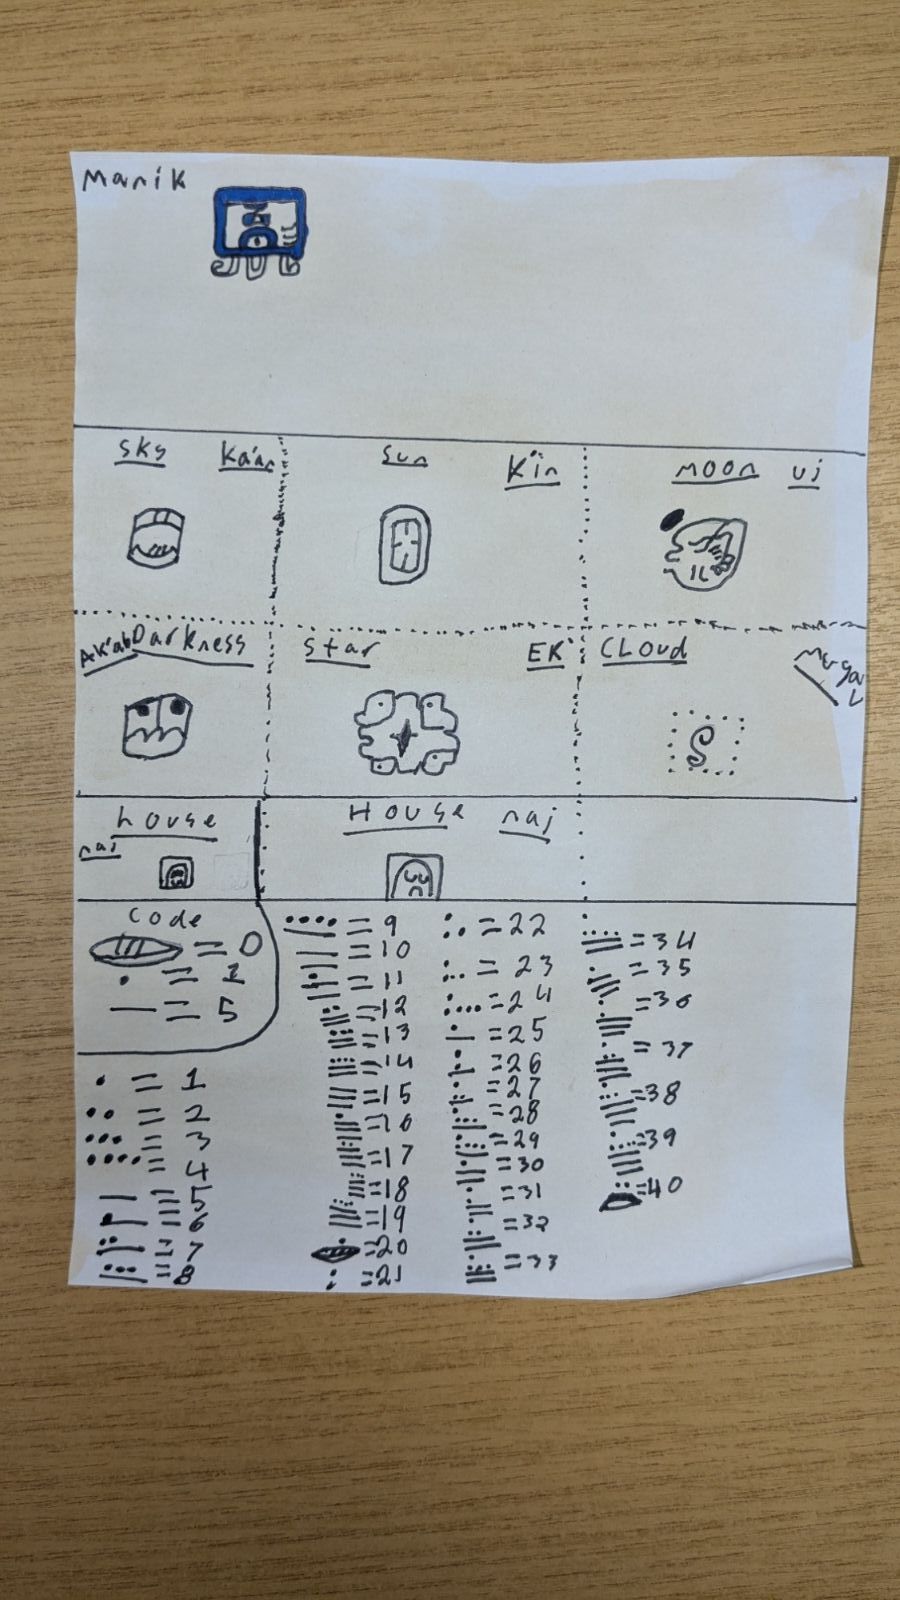 Manik
sky Ka'an sun K'in moon uj
AK'ab Darkness star EK' CLoud
house House naj
naj
code
= 0
• = 1
— = 5
• = 1
•• = 2
••• = 3
•••• = 4
= 5
= 6
= 7
= 8
= 9
= 10
= 11
= 12
= 13
= 14
= 15
= 16
= 17
= 18
= 19
= 20
= 21
= 22
= 23
= 24
= 25
= 26
= 27
= 28
= 29
= 30
= 31
= 32
= 33
= 34
= 35
= 36
= 37
= 38
= 39
= 40